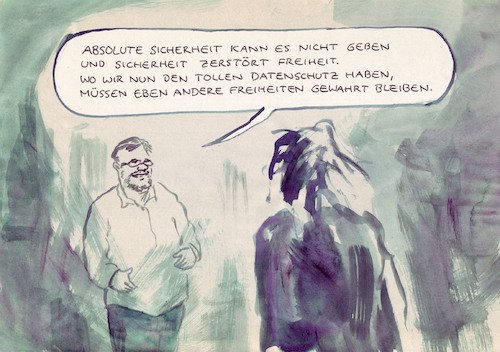 ABSOLUTE SICHERHEIT KANN ES NICHT GEBEN
UND SICHERHEIT ZERSTÖRT FREIHEIT.
WO WIR NUN DEN TOLLEN DATENSCHUTZ HABEN,
MÜSSEN EBEN ANDERE FREIHEITEN GEWAHRT BLEIBEN.